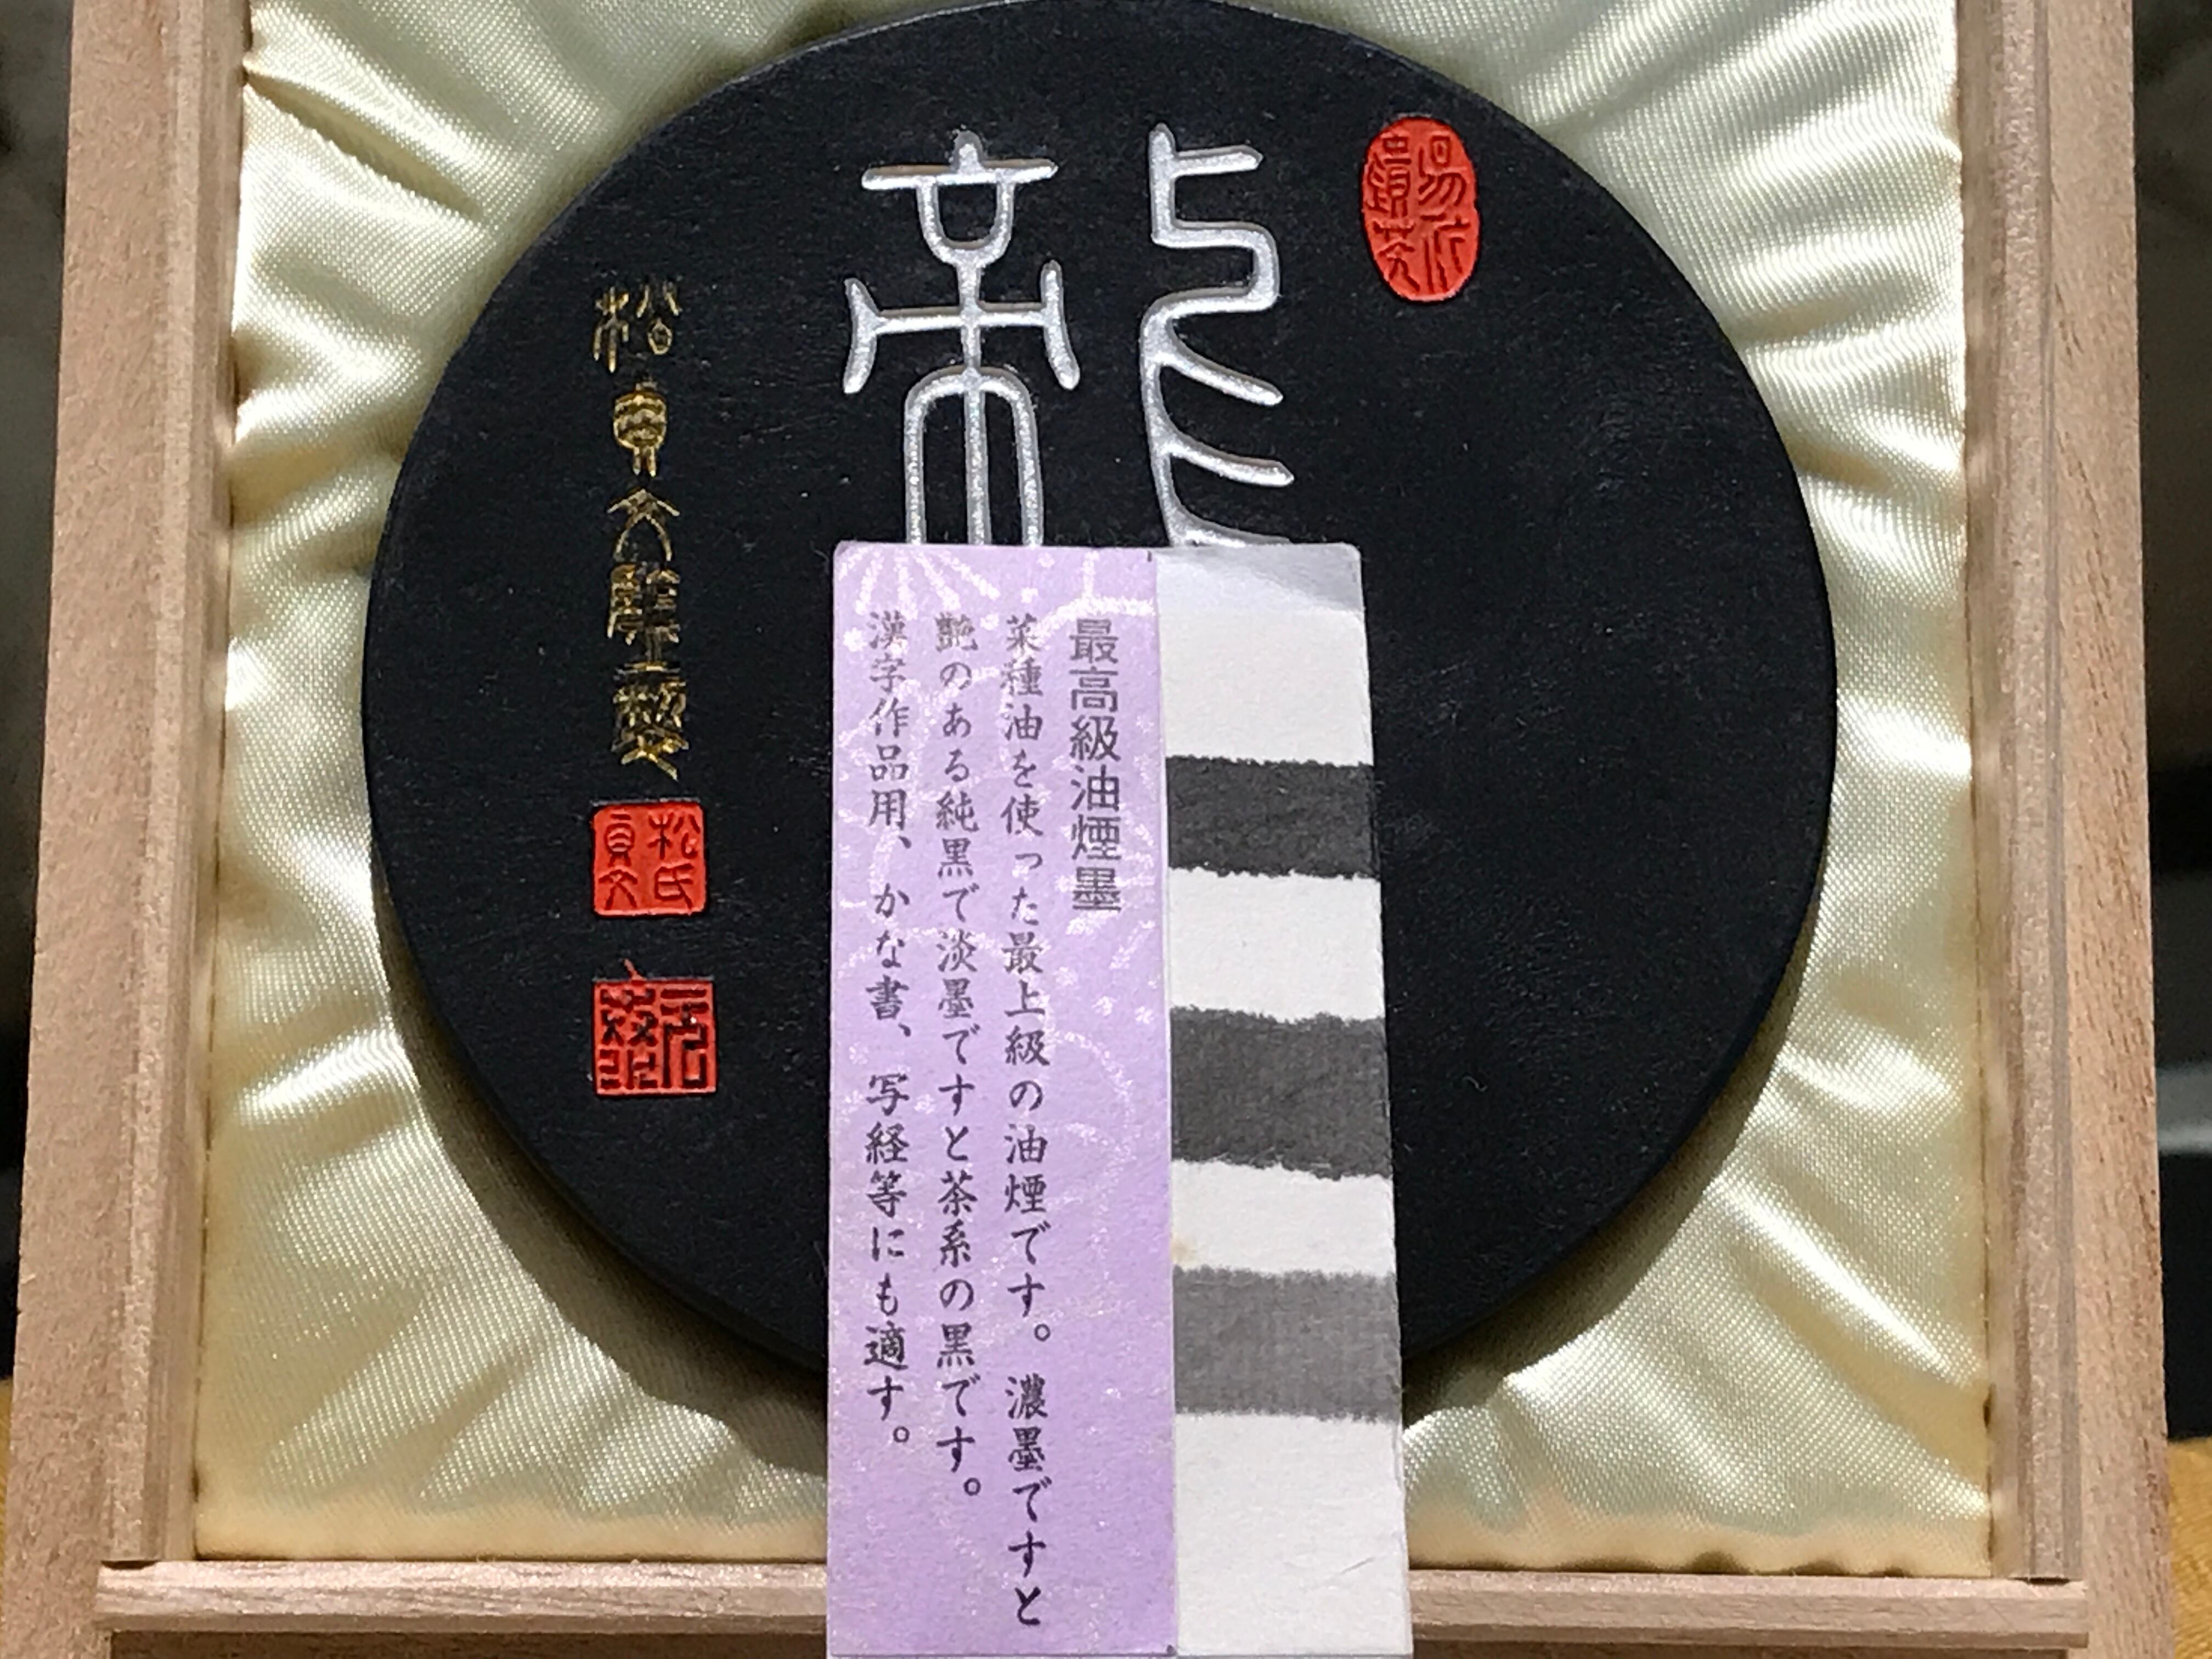 龍
松貞文堅製
松氏貞文
最高級油煙墨
菜種油を使った最上級の油煙です。濃墨ですと
艶のある純黒で淡墨ですと茶系の黒です。
漢字作品用、かな書、写経等にも適す。